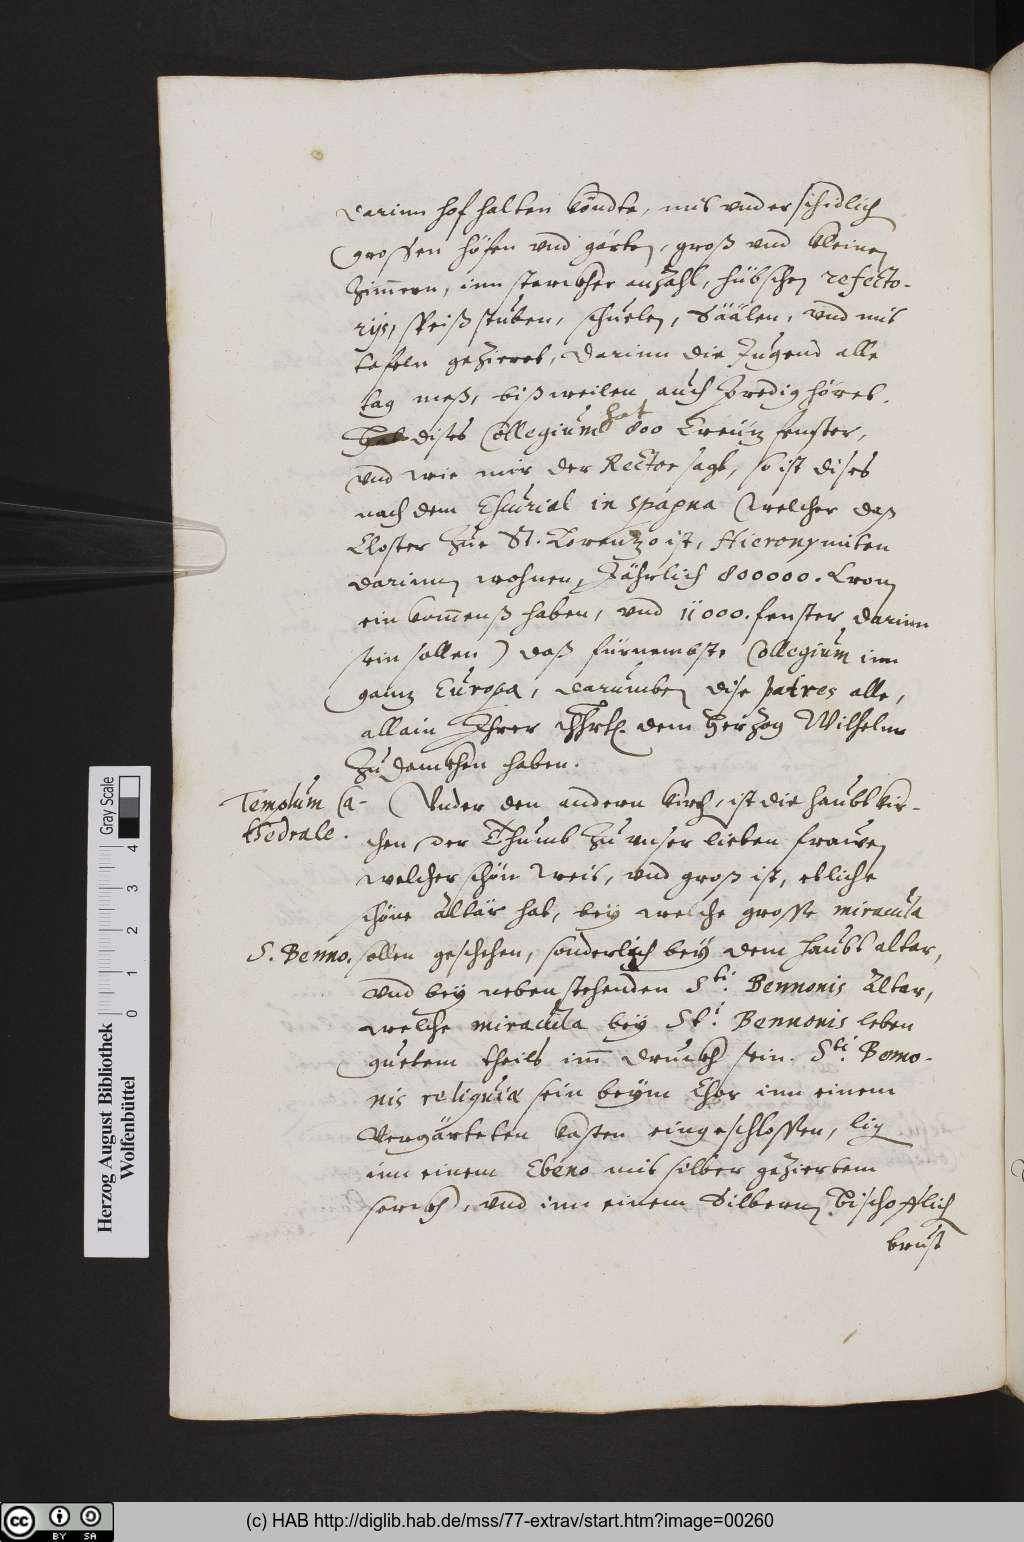 darinn hof halten köndte, mit vnderschidlich
grossen höfen vnd gärten, groß vnd kleinen
Zimmern, inn starckher anzahl, hübschen refecto-
rijs, speiß stuben, schuelen, Säälen, vnd mit
tafeln gezieret, darinn die Jugend alle
tag meß, bißweilen auch Predig höret.
hat dises Collegium hat 800 Creüz fenster,
vnd wie mir der Rector sagt, so ist dises
nach dem Escurial in spagna (welcher daß
Closter zue St. Lorenzo ist, Hieronymiten
darinnen wohnen, Jährlich 800000. Cronen
einkommenß haben, vnd 11000. fenster darinn
sein sollen) daß fürnembste Collegium inn
ganz Europa, darumben dise patres alle,
allain Ihrer dhrt. dem Herzog Wilhelm
zu danckhen haben.
Templum Ca-
thedrale.
Vnder den andern Kirch, ist die haubt kir-
chen der Thumb zu vnser lieben frauen
welcher schön weit, vnd groß ist, etliche
schöne Altär hat, bey welche grosse miracula
S. Benno.
sollen geschehen, sonderlich bey dem haubt altar,
vnd bey neben stehenden Sti. Bennonis Altar,
welche miracula bey Sti. Bennonis leben
guetem theils im druckh sein. Sti. Benno-
nis reliquiæ sein beym Chor inn einem
vergärteten Casten eingeschlossen, lig
inn einem Ebeno mit silber geziertem
sarckh, vnd inn einem Silbernen Bischofflich
brust
Herzog August Bibliothek
Wolfenbüttel
Gray Scale
0 1 2 3 4
cc BY SA
(c) HAB http://diglib.hab.de/mss/77-extrav/start.htm?image=00260